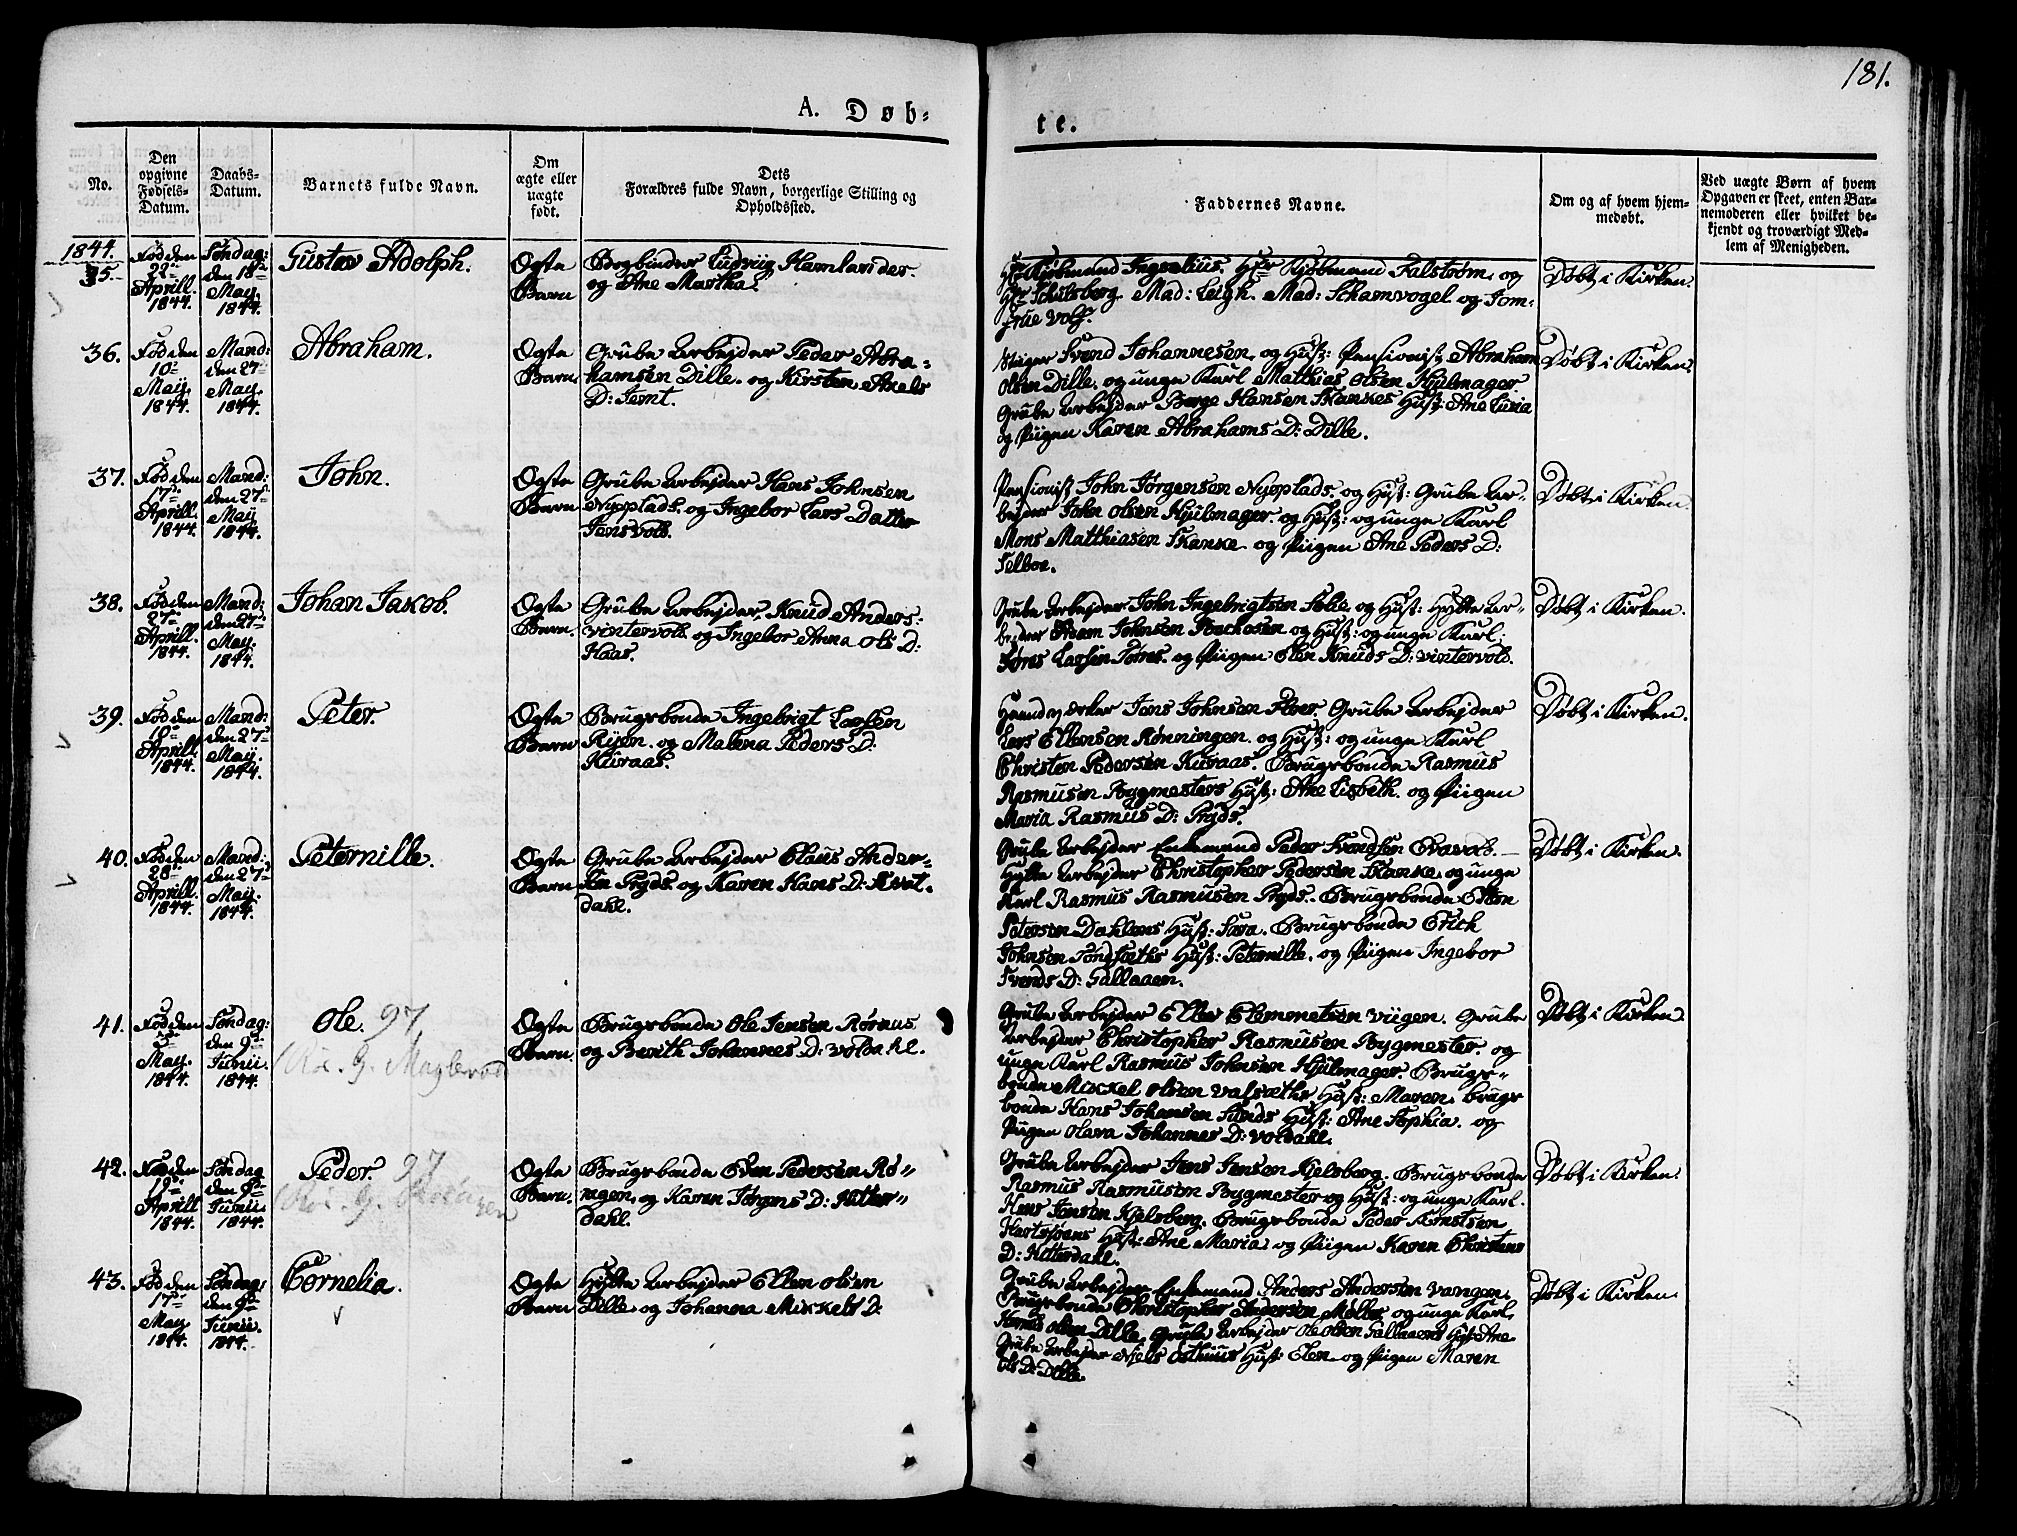 181.
A. Døb-
te.
No.
Den
opgivne
Fødsels-
Datum.
Daabs-
Datum.
Barnets fulde Navn.
Om
ægte eller
uægte
født.
Dets
Forældres fulde Navn, borgerlige Stilling og
Opholdssted.
Faddernes Navne.
Om og af hvem hjem-
medøbt.
Ved uægte Børn af hvem
Opgaven er skeet, enten Bar-
nemoderen eller hvilket be-
kjendt og troværdigt Med-
lem af Menigheden.
1844.
35.
Fød den
Aprill.
1844.
Søndag:
den
May.
1844.
Gustav Adolph.
Ægte
Barn
Bogbinder Ludvig
og Ane Martha.
Kjøbmand Ingselius. Hr Kjøbmand Falstrøm, og
Mad: Leigh. Mad: Schamvogel og Jom-
frue Volf.
Døbt i Kirken.
36.
Fød den
10de
Maij.
1844.
Mand:
den 27de
May.
1844.
Abraham.
Ægte
Barn.
Grube Arbejder Peder Abra-
hamsen Dille. og Kirsten Axels
D: Jemt.
Stiiger Svend Johannesen, og Hust: Pensionist Abraham
Olsen Dille. og unge Karl Matthias Olsen Hjulmager.
Grube Arbejder Børge Hansen Skankes Hust: Ane Lusia
og Piigen Karen Abrahams D: Dille.
Døbt i Kirken.
37.
Fød den
17de
Aprill.
1844.
Mand:
den 27de
Maij
1844.
John.
Ægte
Barn
Grube Arbejder Hans Johnsen
Nyeplads. og Ingebor Lars Datter
Jensvold.
Pensionist John Jørgensen Nyeplads. og Hust: Grube Ar-
bejder John Olsen Hjulmager. og Hust: og unge Karl
Mons Matthiasen Skanke og Piigen Ane Peders D:
Selboe.
Døbt i Kirken.
38.
Fød den
27de
Aprill.
1844.
Mand:
den 27de
May.
1844.
Johan Jakob.
Ægte
Barn.
Grube Arbejder, Knud Anders:
Vintervold og Ingebor Anna Ols D:
Haas.
Grube Arbejder John Ingebrigtsen og Hust: Hytte Ar-
bejder Johnsen og Hust: og unge Karl.
Lassen og Piigen Elen Knuds D: Vintervold.
Døbt i Kirken.
39.
Fød den
10de
Aprill.
1844.
Mand:
den 27de
May.
1844.
Peter.
Ægte
Barn
Brugsbonde Ingebrigt Larsen
Ryen. og Malena Peders D:
Kuraas.
Haandværker Jens Johnsen Floer. Grube Arbejder
Lars Ellensen Rønningen. og Hust: og unge Karl
Christen Pedersen Kuraas. Brugsbonde Rasmus
Rasmusen Bygmesters Hust: Ane Lisbeth. og Piigen
Maria Rasmus D: Pryds.
Døbt i Kirken.
40.
Fød den
28de
Aprill.
1844.
Mand:
den 27de
May.
1844.
Peternille.
Ægte
Barn
Grube Arbejder Claus Ander-
sen Pryds. og Karen Hans D: Hvat-
dahl.
Grube Arbejder Enkemand Peder Svendsen
Hytte Arbejder Christopher Pedersen Skanke, og unge
Karl Rasmus Rasmusen Pryds. Brugsbonde Esten
Petersen Dahlens Hust: Sara. Brugsbonde Erich
Johnsen Tønsæths Hust: Peternille. og Piigen Ingebor
Svends D: Gallaaen.
Døbt i Kirken.
41.
Fød den
5te
May.
1844.
Søndag:
den 9de
Junii.
1844.
Ole. 97.
Ægte
Barn.
Brugsbonde Ole Jensen Rørnus.
og Berith Johannes D: Voldahl.
Grube Arbejder Eller Clemmetsen Viigen. Grube
Arbejder Christopher Rasmusen Bygmester. og
unge Karl Rasmus Johnsen Hjulmager. Brugs-
bonde Mikkel Olsen Valsæths Hust: Maren, brugs
bonde Hans Johansen Sunds Hust: Ane Sophia. og
Piigen Olava Johannes D: Voldahl.
Døbt i Kirken.
42.
Fød den
19de
Aprill
1844.
Søndag
den 9de
Junii.
1844.
Peder. 97
Ægte
Barn.
Brugsbonde Even Pedersen Rø-
negen, og Karen Jørgens D: Hitter-
dahl.
Grube Arbejder Jens Jensen Kjelsberg. Brugsbonde
Rasmus Rasmusen Bygmester og Hust: og unge Karl.
Hans Jensen Kjelsberg. Brugsbonde Peder Ernstsen
Hartsjøens Hust: Ane Maria. og Piigen Karen Christens
D: Hitterdahl.
Døbt i Kirken.
43.
Fød den
17de
May
1844.
Søndag:
den 9de
Junii.
1844.
Cornelia.
Ægte
Barn.
Hytte Arbejder Ellen Olsen
Dille og Johanna Mikkels D:
Grube Arbejder Enkemand Anders Andersen Vangen,
Brugsbonde Christopher Andersen og unge Karl,
Olsen Dille, Grube Arbejder Ole Olsen Gallaaens Hust Ane
Grube Arbejder Niels Hust: Elen og Piigen Maren
Ols D: Dille.
Døbt i Kirken.